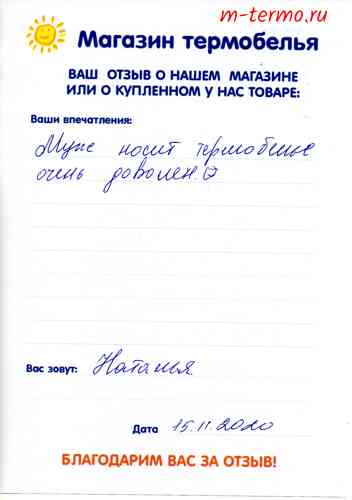 m-termo.ru
Магазин термобелья
ВАШ ОТЗЫВ О НАШЕМ МАГАЗИНЕ
ИЛИ О КУПЛЕННОМ У НАС ТОВАРЕ:
Ваши впечатления:
Муж носит термобелье
очень доволен.
Вас зовут: Наталья
Дата 15.11.2020
БЛАГОДАРИМ ВАС ЗА ОТЗЫВ!